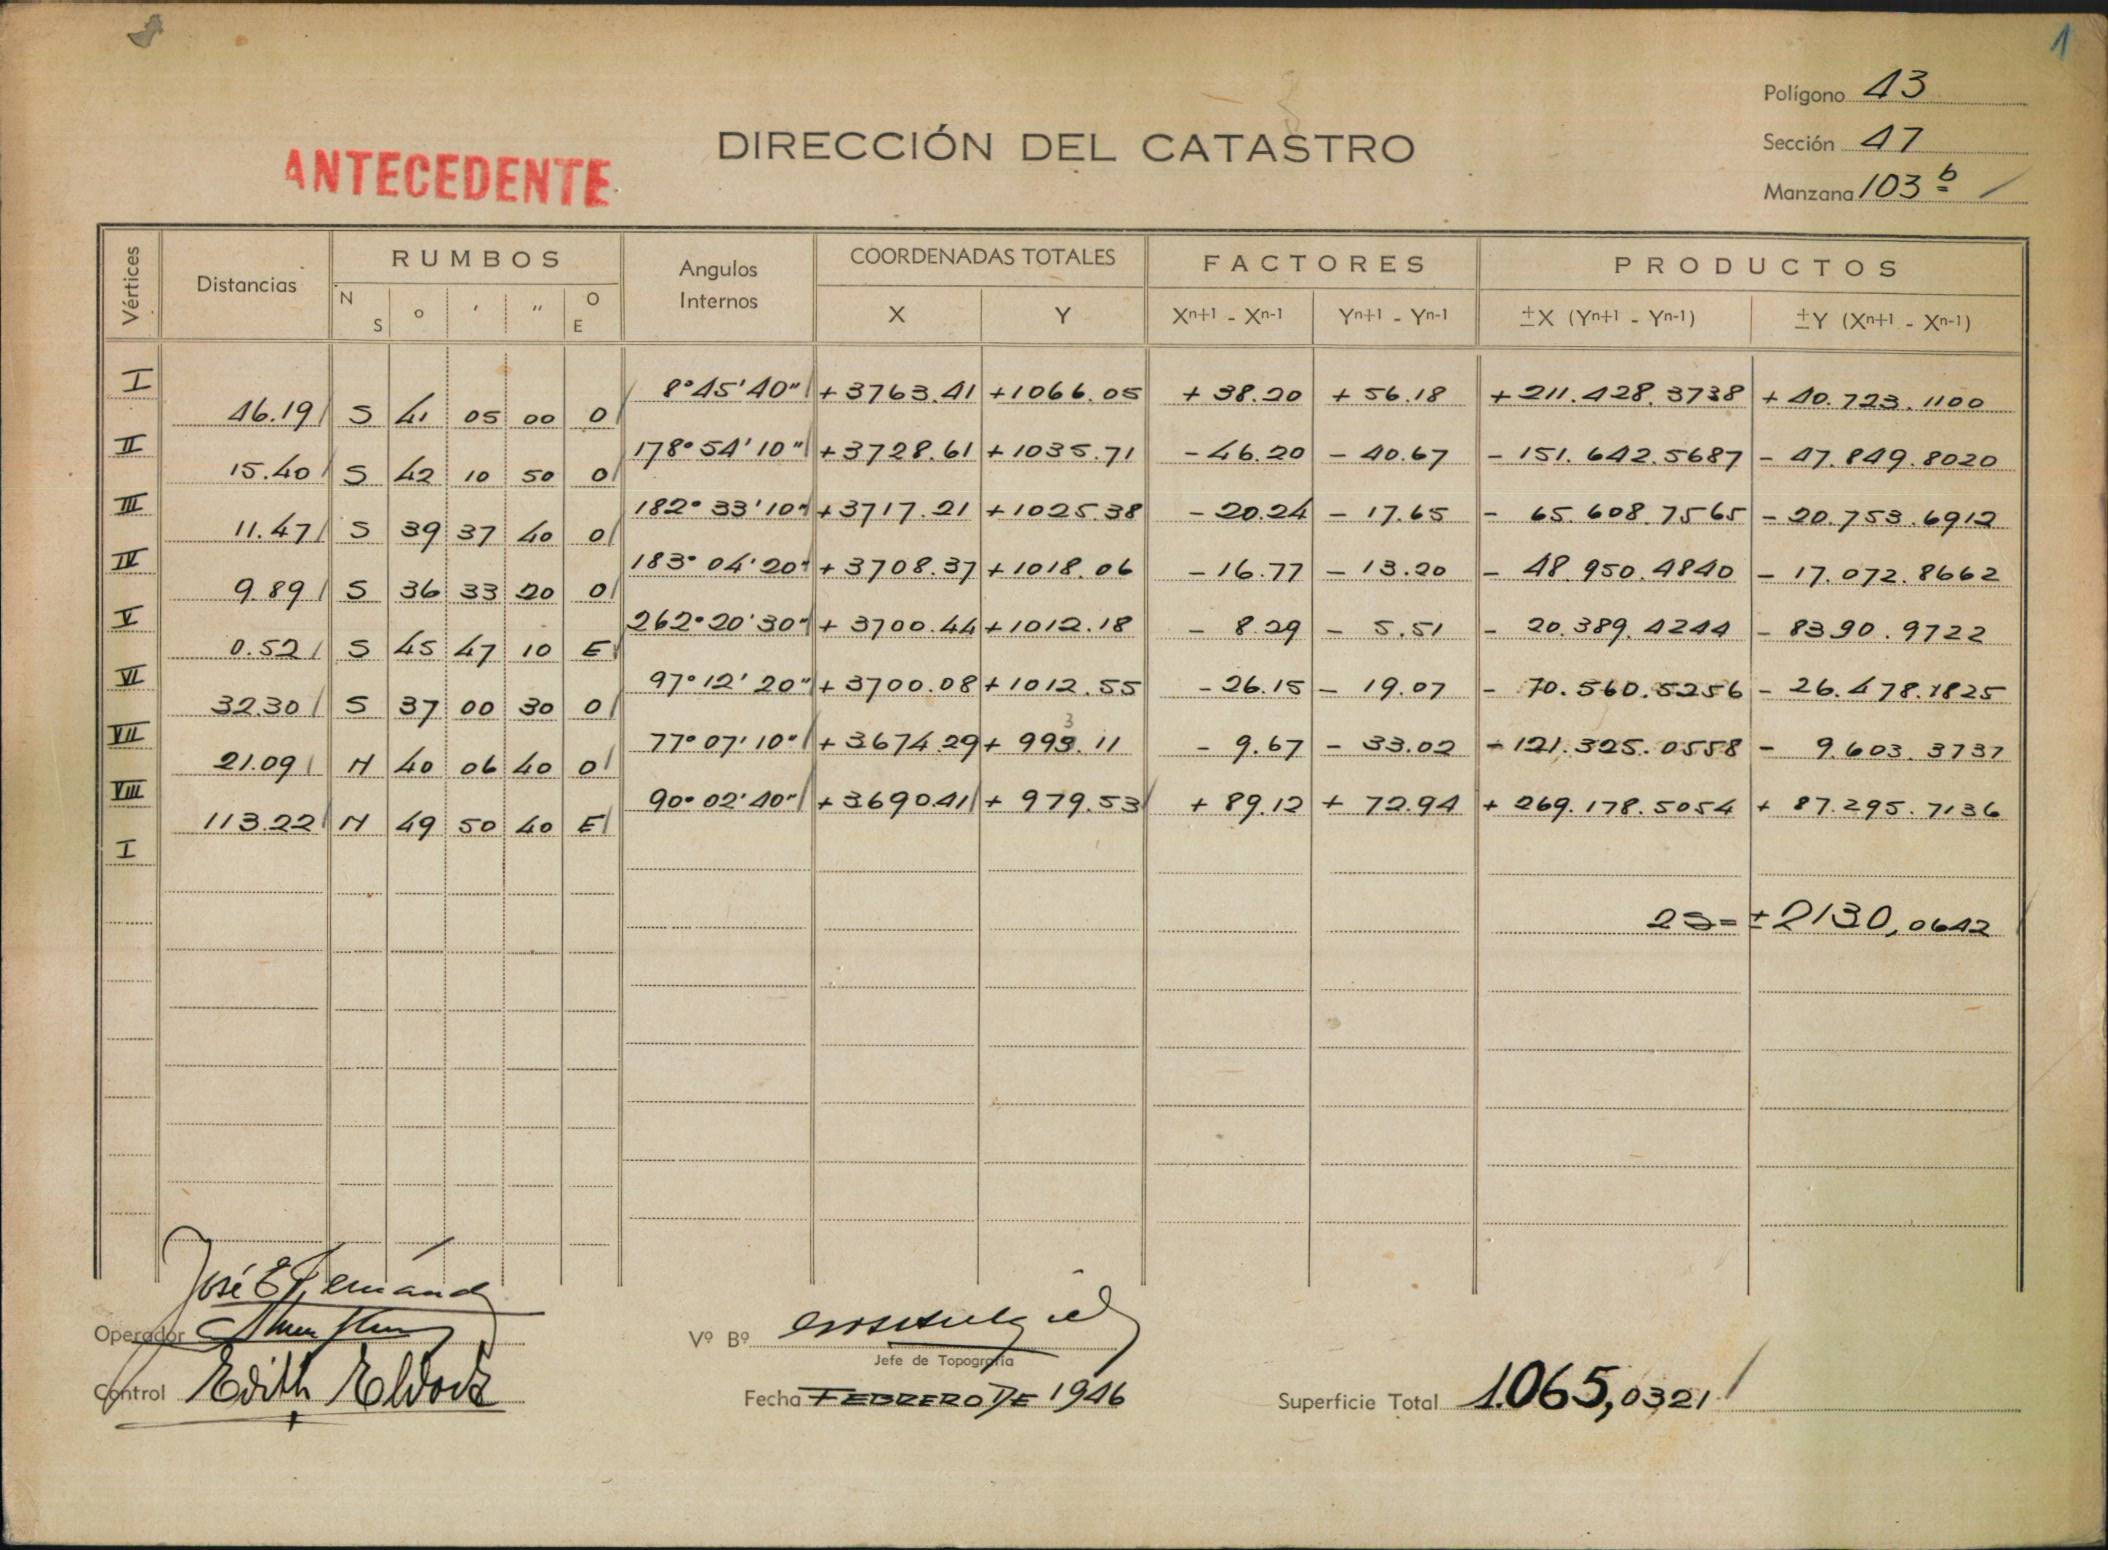 1
Polígono 43
Sección 47
Manzana 103 b
ANTECEDENTE
DIRECCIÓN DEL CATASTRO
Vértices Distancias RUMBOS Angulos Internos COORDENADAS TOTALES FACTORES PRODUCTOS
N S ° ' " O E X Y Xn+1 - Xn-1 Yn+1 - Yn-1 ±X (Yn+1 - Yn-1) ±Y (Xn+1 - Xn-1)
I 8°45'40" +3763.41 +1066.05 +38.20 +56.18 +211.428.3738 +40.723.1100
46.19 S 41 05 00 O
II 178°54'10" +3728.61 +1035.71 -46.20 -40.67 -151.642.5687 -47.849.8020
15.40 S 42 10 50 O
III 182°33'10" +3717.21 +1025.38 -20.24 -17.65 -65.608.7565 -20.753.6912
11.47 S 39 37 40 O
IV 183°04'20" +3708.37 +1018.06 -16.77 -13.20 -48.950.4840 -17.072.8662
9.89 S 36 33 20 O
V 262°20'30" +3700.44 +1012.18 -8.29 -5.51 -20.389.4244 -8390.9722
0.52 S 45 47 10 E
VI 97°12'20" +3700.08 +1012.55 -26.15 -19.07 -70.560.5256 -26.478.1825
32.30 S 37 00 30 O
3
VII 77°07'10" +3674.29 +993.11 -9.67 -33.02 -121.325.0558 -9.603.3737
21.09 N 40 06 40 O
VIII 90°02'40" +3690.41 +979.53 +89.12 +72.94 +269.178.5054 +87.295.7136
113.22 N 49 50 40 E
I
2S= ±2130,0642
José E Fernánd
Operador
Vº Bº
Jefe de Topografía
Control Edith
Fecha FEBRERO DE 1946
Superficie Total 1.065,0321